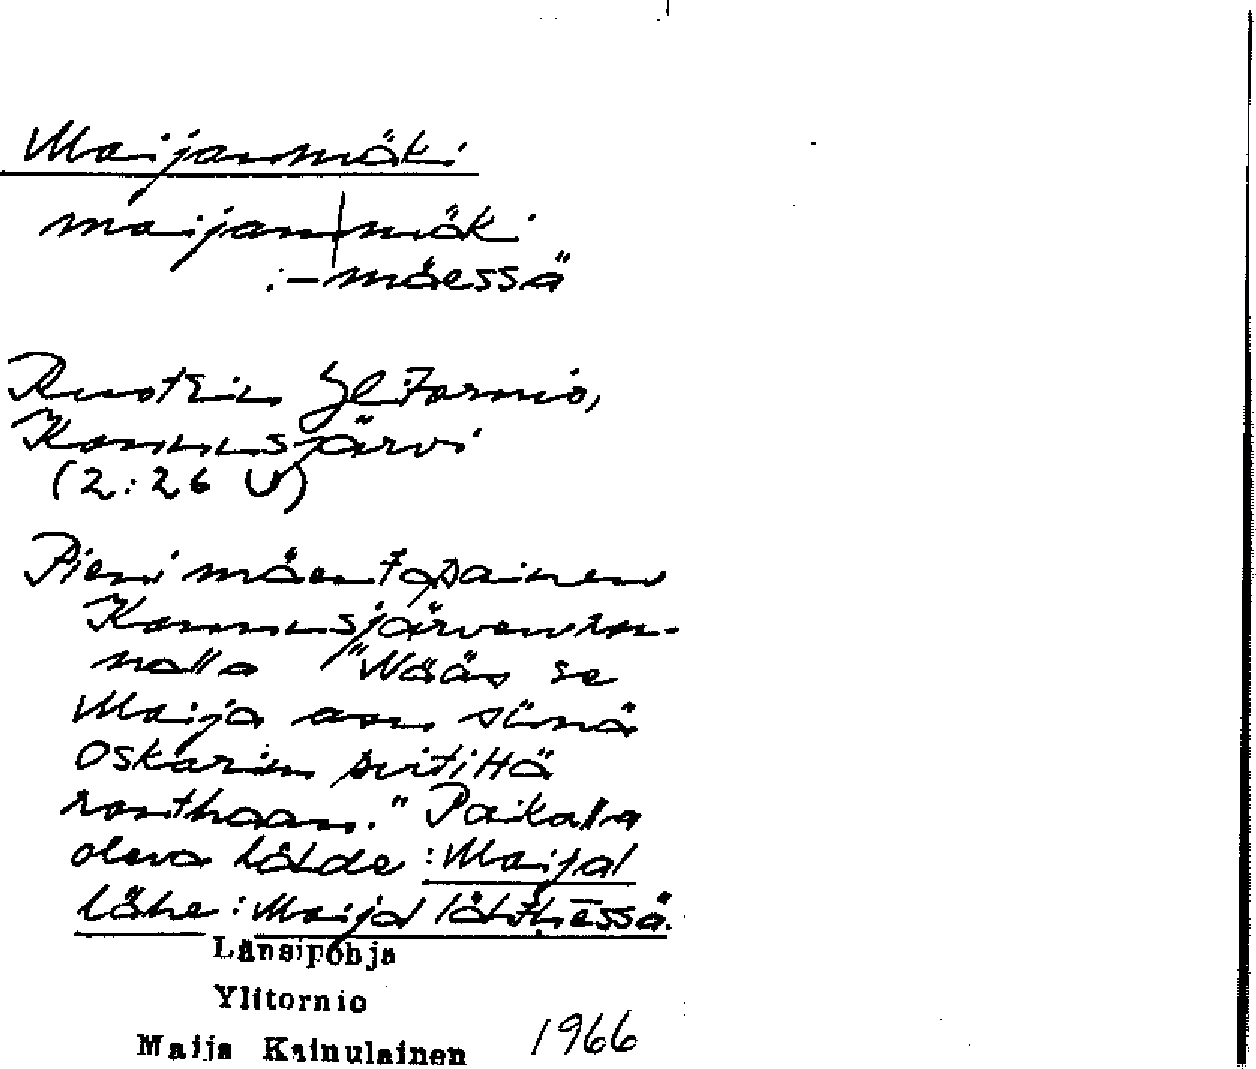 Maijanmäki
maijan|mäki
:–mäessä
Ruotsin Ylitornio,
Kannusjärvi
(2:26 U)
Pieni mäentapainen
Kannusjärvenran-
nalla "Nääs se
Maija on siinä
Oskarin
." Paikalla
oleva lähde : Maijal
lähe : Maijal lähthēssä.
Länsipohja
Ylitornio
Maija Kainulainen 1966